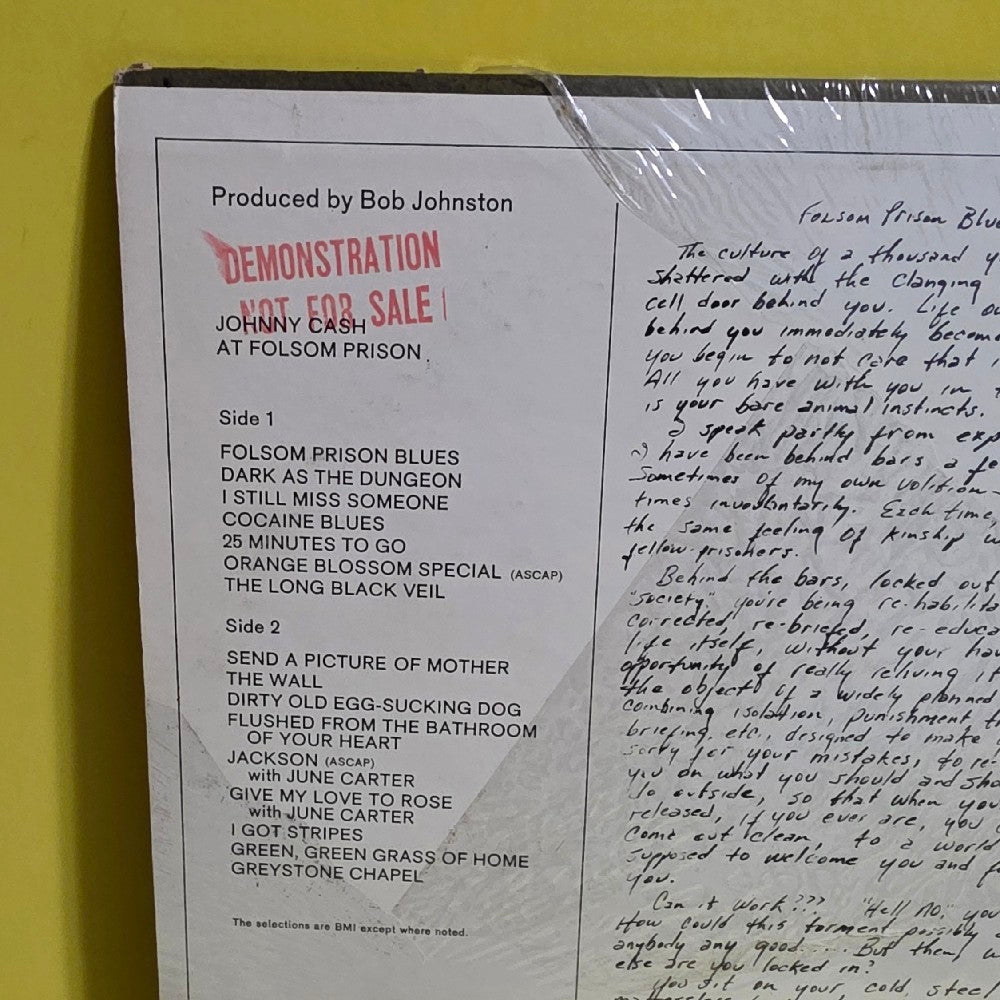 Produced by Bob Johnston
DEMONSTRATION
NOT FOR SALE
JOHNNY CASH
AT FOLSOM PRISON
Side 1
FOLSOM PRISON BLUES
DARK AS THE DUNGEON
I STILL MISS SOMEONE
COCAINE BLUES
25 MINUTES TO GO
ORANGE BLOSSOM SPECIAL (ASCAP)
THE LONG BLACK VEIL
Side 2
SEND A PICTURE OF MOTHER
THE WALL
DIRTY OLD EGG-SUCKING DOG
FLUSHED FROM THE BATHROOM
OF YOUR HEART
JACKSON (ASCAP)
with JUNE CARTER
GIVE MY LOVE TO ROSE
with JUNE CARTER
I GOT STRIPES
GREEN, GREEN GRASS OF HOME
GREYSTONE CHAPEL
The selections are BMI except where noted.
Folsom Prison Blue
The culture of a thousand y
shattered with the clanging
cell door behind you. Life ou
behind you immediately become
you begin to not care that i
All you have with you in t
is your bare animal instincts.
I speak partly from exp
I have been behind bars a fe
Sometimes of my own volition-
times involuntarily. Each time,
the same feeling of kinship w
fellow-prisoners.
Behind the bars, locked out
"society" you're being re-habilita
corrected, re-briefed, re-educa
life itself, without your hav
opportunity of really reliving it
the object of a widely planned
combining isolation, punishment t
briefing, etc., designed to make
sorry for your mistakes, to re-
you on what you should and sho
do outside, so that when you
released, if you ever are, you
come out clean, to a world
supposed to welcome you and f
you.
Can it work??? "Hell NO." you
How could this torment possibly
anybody any good.... But then, w
else are you locked in?
You sit on your cold, steel